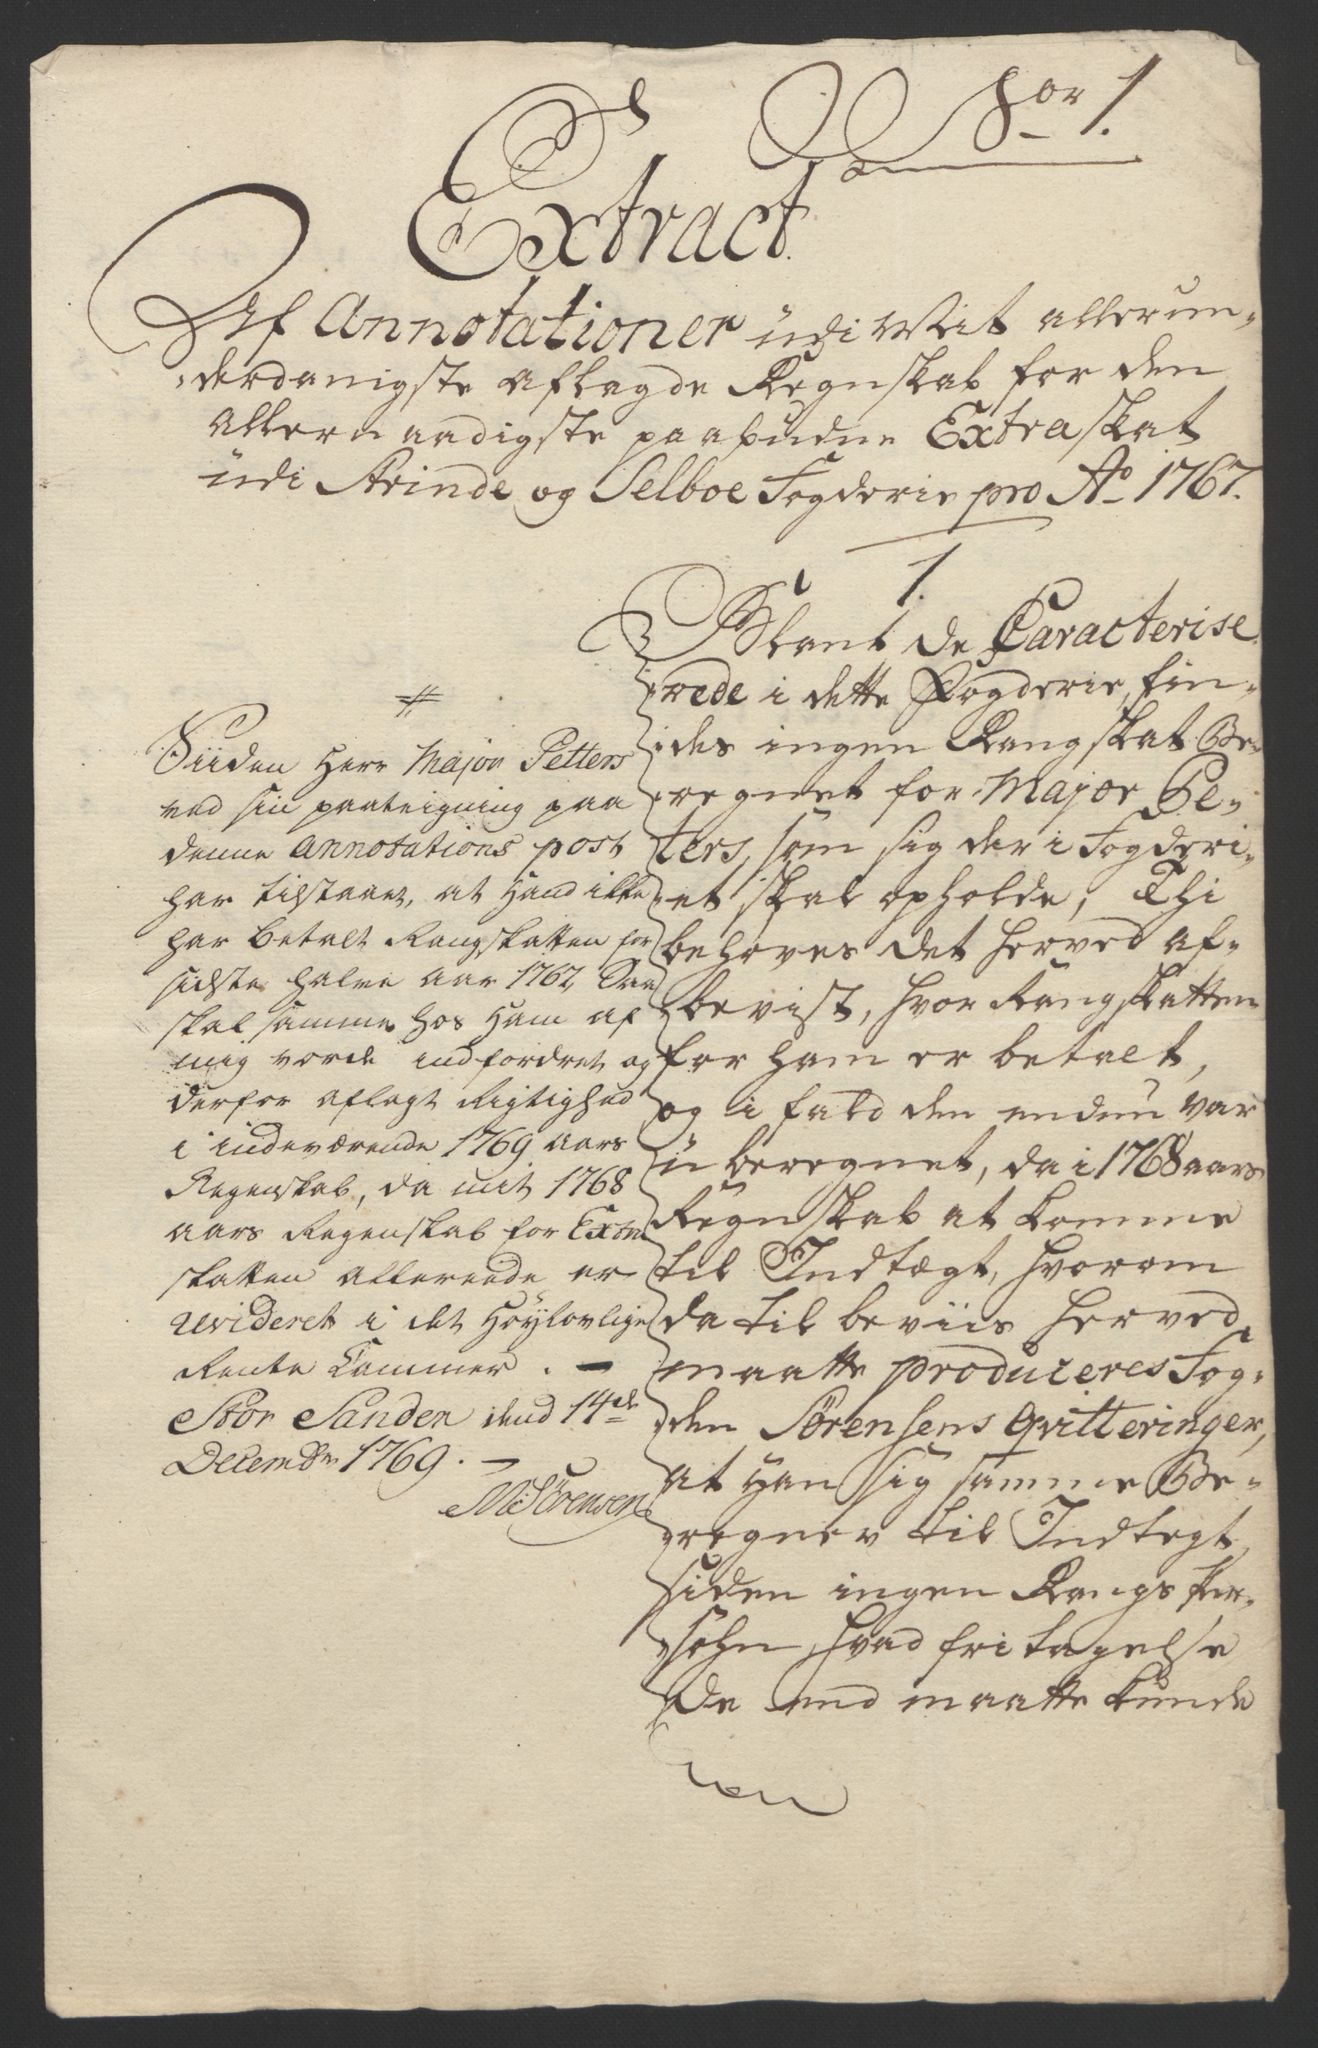 Nor 1.
Extract
Af Annotationer udi Mit allerun-
derdanigste aflagde Regnskab for den
Allernaadigste paabudne Extraskat
udi Strinde og Selboe Fogderie pro Ao 1767.
1.
Blant de Caracterise-
rede i dette Fogderie, fin-
des ingen Rangskat Be-
regnet for Major Pe-
ters, som sig der i Fogderi-
et skal opholde, Thi
behøves det herved af-
bevist, hvor Rangskatten
for ham er betalt,
og i fald den endnu var
uberegnet, da i 1768 aars
Regnskab at komme
til Indtægt, hvorom
da til beviis herved
maatte produceres Fog-
den Sørensens Qvitteringer,
at Han sig samme Be-
regner til Indtegt,
siden ingen Rangs Per-
sohn, hvad fritagelse
de end maatte kunde
#
Siiden Herr Major Petters
ved sin paateigning paa
denne Annotations post
har tilstaaet, at Hand ikke
har betalt Rangskatten for
sidste halve aar 1767, Saa
skal samme hos Ham af
mig vorde indfordret og
derfor aflagt Rigtighed
i indeværende 1769 aars
Regenskab, da mit 1768
aars Regenskab for Extra
skatten allereede er
revideret i det Høylovlige
Rente Cammer. -
Stor Sanden dend 14de
Decembr 1769. -
MSørensen